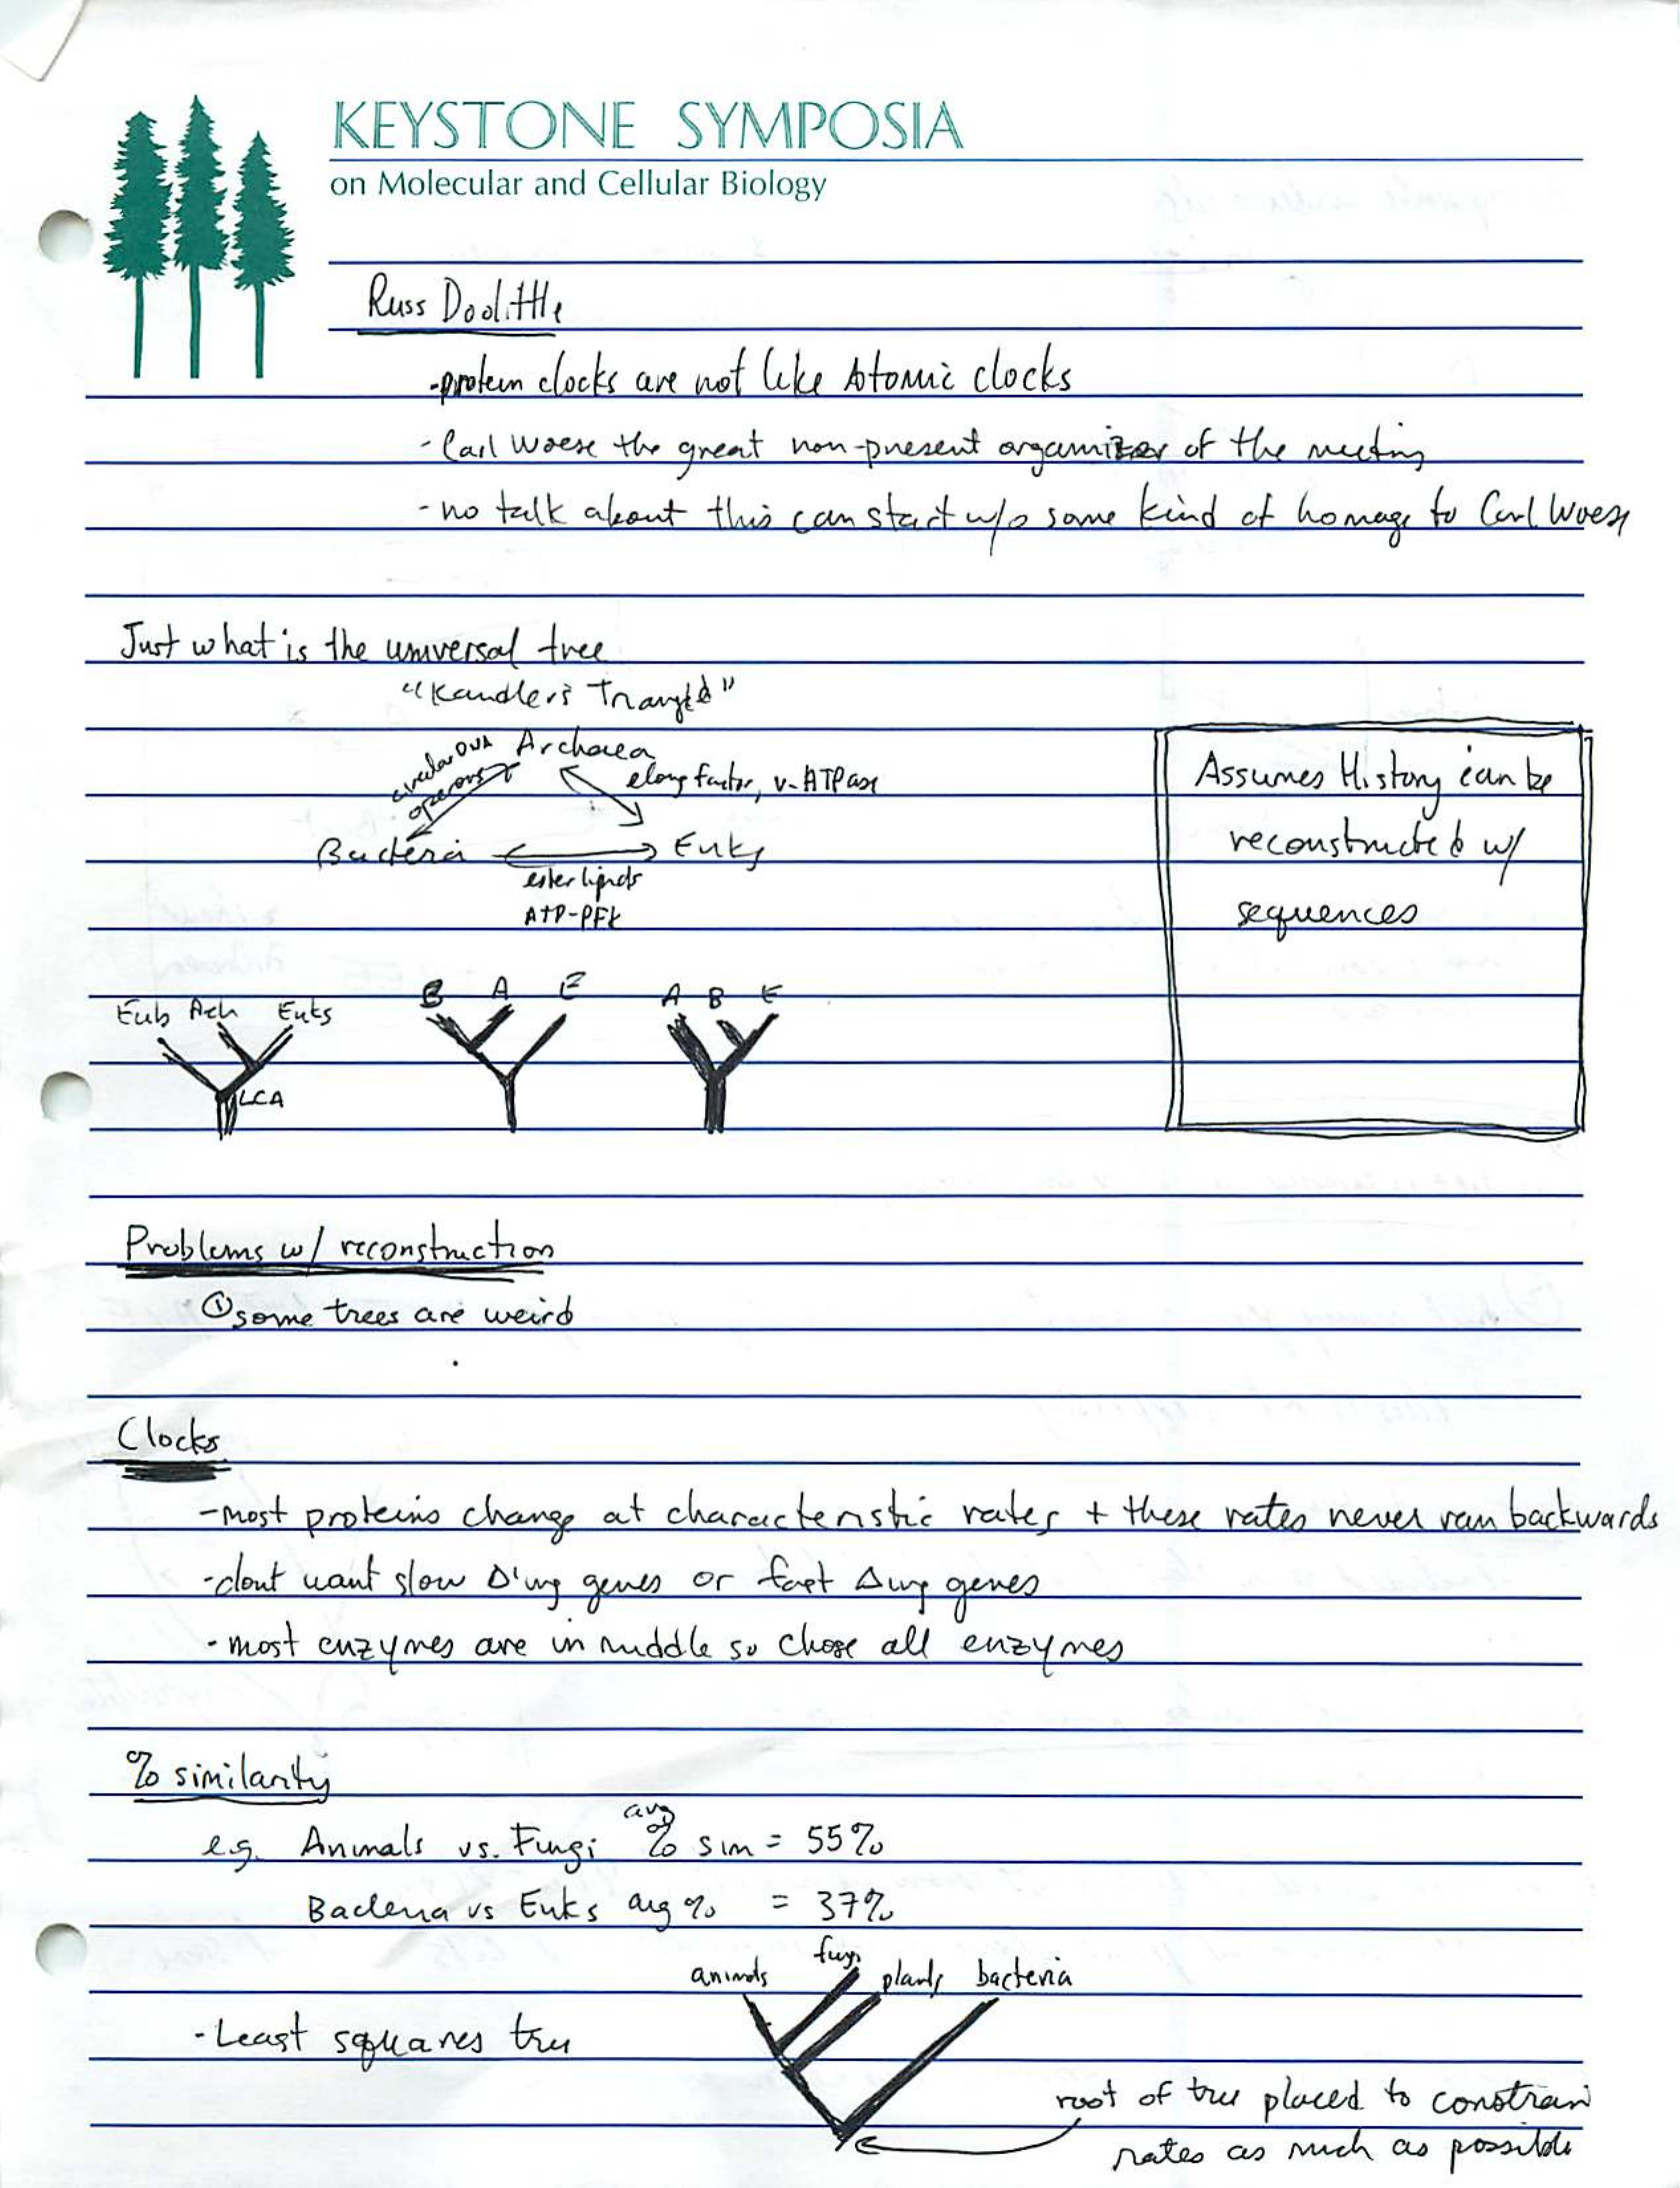 KEYSTONE SYMPOSIA
on Molecular and Cellular Biology
Russ Doolittle
- protein clocks are not like Atomic clocks
- Carl Woese the great non-present organizer of the meeting
- no talk about this can start w/o some kind of homage to Carl Woese
Just what is the universal tree
"Kandler's Triangle"
circular DNA
operons
Archaea
elong factor, v-ATPase
Bacteria
Euks
ester lipids
ATP-PFK
Assumes History can be
reconstructed w/
sequences
Eub Ach Euks
LCA
B A E
A B E
Problems w/ reconstruction
① some trees are weird
Clocks
- most proteins change at characteristic rates + these rates never ran backwards
- dont want slow Δ'ing genes or fast Δing genes
- most enzymes are in middle so chose all enzymes
% similarity
avg
e.g. Animals vs. Fungi % sim = 55%
Bacteria vs Euks avg % = 37%
animals fungi plants bacteria
- Least squares tree
root of tree placed to constrain
rates as much as possible